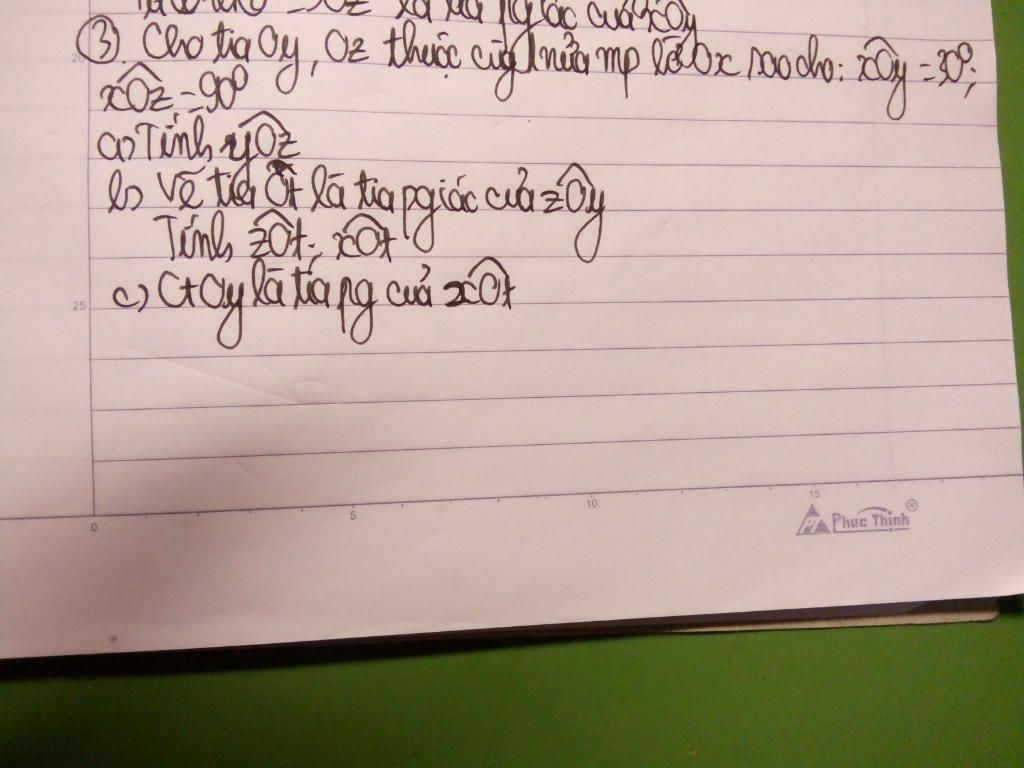 = xOz là tia pgiác của xOy
③. Cho tia Oy, Oz thuộc cùg 1 nửa mp bờ Ox sao cho: xÔy = 30°;
xÔz = 90°
a) Tính yÔz
b) Vẽ tia Ot là tia pgiác của zÔy
Tính zÔt; xÔt
c) Ct Oy là tia pg của xÔt
20
25
0 5 10 15
Phuc Thinh ®